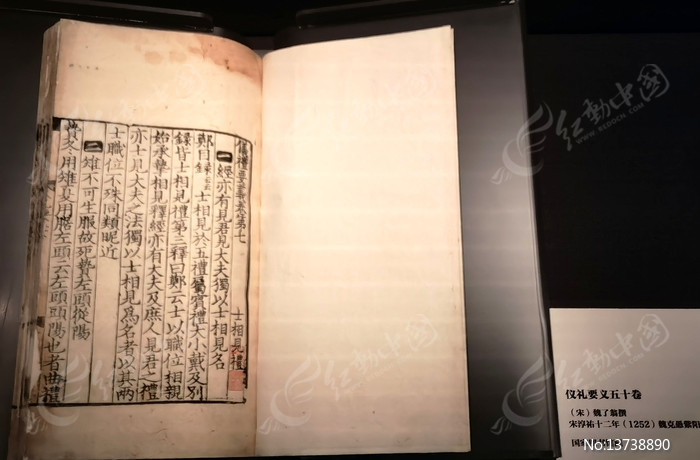 儀禮要義卷第七
士相見禮
一 經亦有見君見大夫獨以士相見名
鄭目録云士相見於五禮屬賓禮大小戴及別
録皆士相見禮第三釋曰鄭云士以職位相親
始承摯相見釋經亦有大夫及庶人見君之禮
亦士見大夫之法獨以士相見爲名者以其兩
士職位不殊同類昵近
二 雉不可生服故死贄左頭從陽
冬用雉夏用腒左頭云左頭頭陽也者曲禮
仪礼要义五十卷
（宋）魏了翁撰
宋淳祐十二年（1252）魏克愚紫阳
国
红動中国
No:13738890